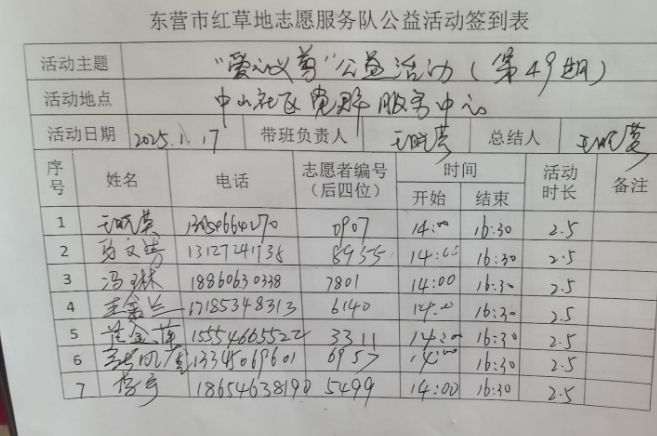 东营市红草地志愿服务队公益活动签到表
活动主题 "爱心义剪"公益活动(第49期)
活动地点 中山社区党群服务中心
活动日期 2025.1.17 带班负责人 王晓英 总结人 王晓英
序号 姓名 电话 志愿者编号(后四位) 时间 开始 结束 活动时长 备注
1 王晓英 0907 14:00 16:30 2.5
2 13127241738 8955 14:00 16:30 2.5
3 冯琳 18860630338 7801 14:00 16:30 2.5
4 王金兰 17185348313 6140 14:00 16:30 2.5
5 15554665522 3311 14:00 16:30 2.5
6 13345069601 6957 14:00 16:30 2.5
7 18654638190 5499 14:00 16:30 2.5